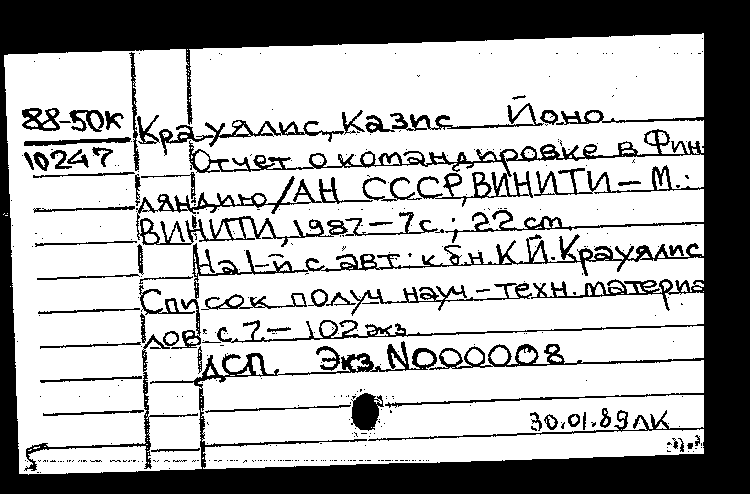 88-50К
10247
Крауялис, Казис Йоно.
Отчет о командировке в Фин-
ляндию/АН СССР, ВИНИТИ — М.:
ВИНИТИ, 1987 — 7 с.; 22 cm
На 1-й с. авт.: к.б.н. К.Й. Крауялис
Список получ. науч.-техн. материа
лов: с. 7. — 102 экз.
ДСП. Экз. N000008.
30.01.89 ЛК